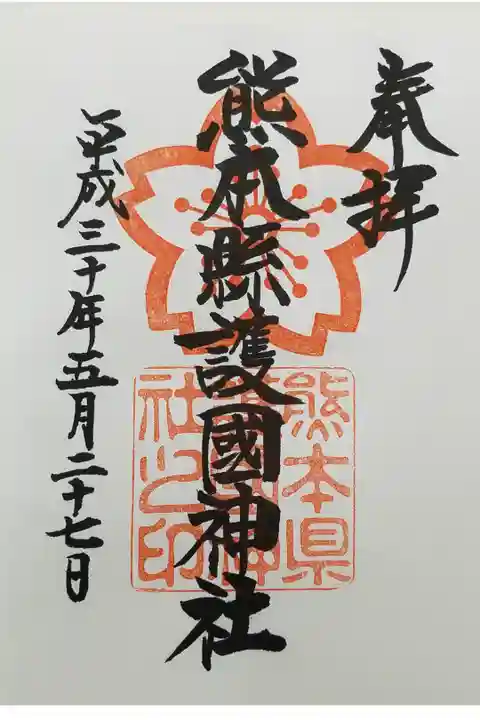 奉拝
熊本縣護國神社
熊本県護國神社之印
平成三十年五月二十七日